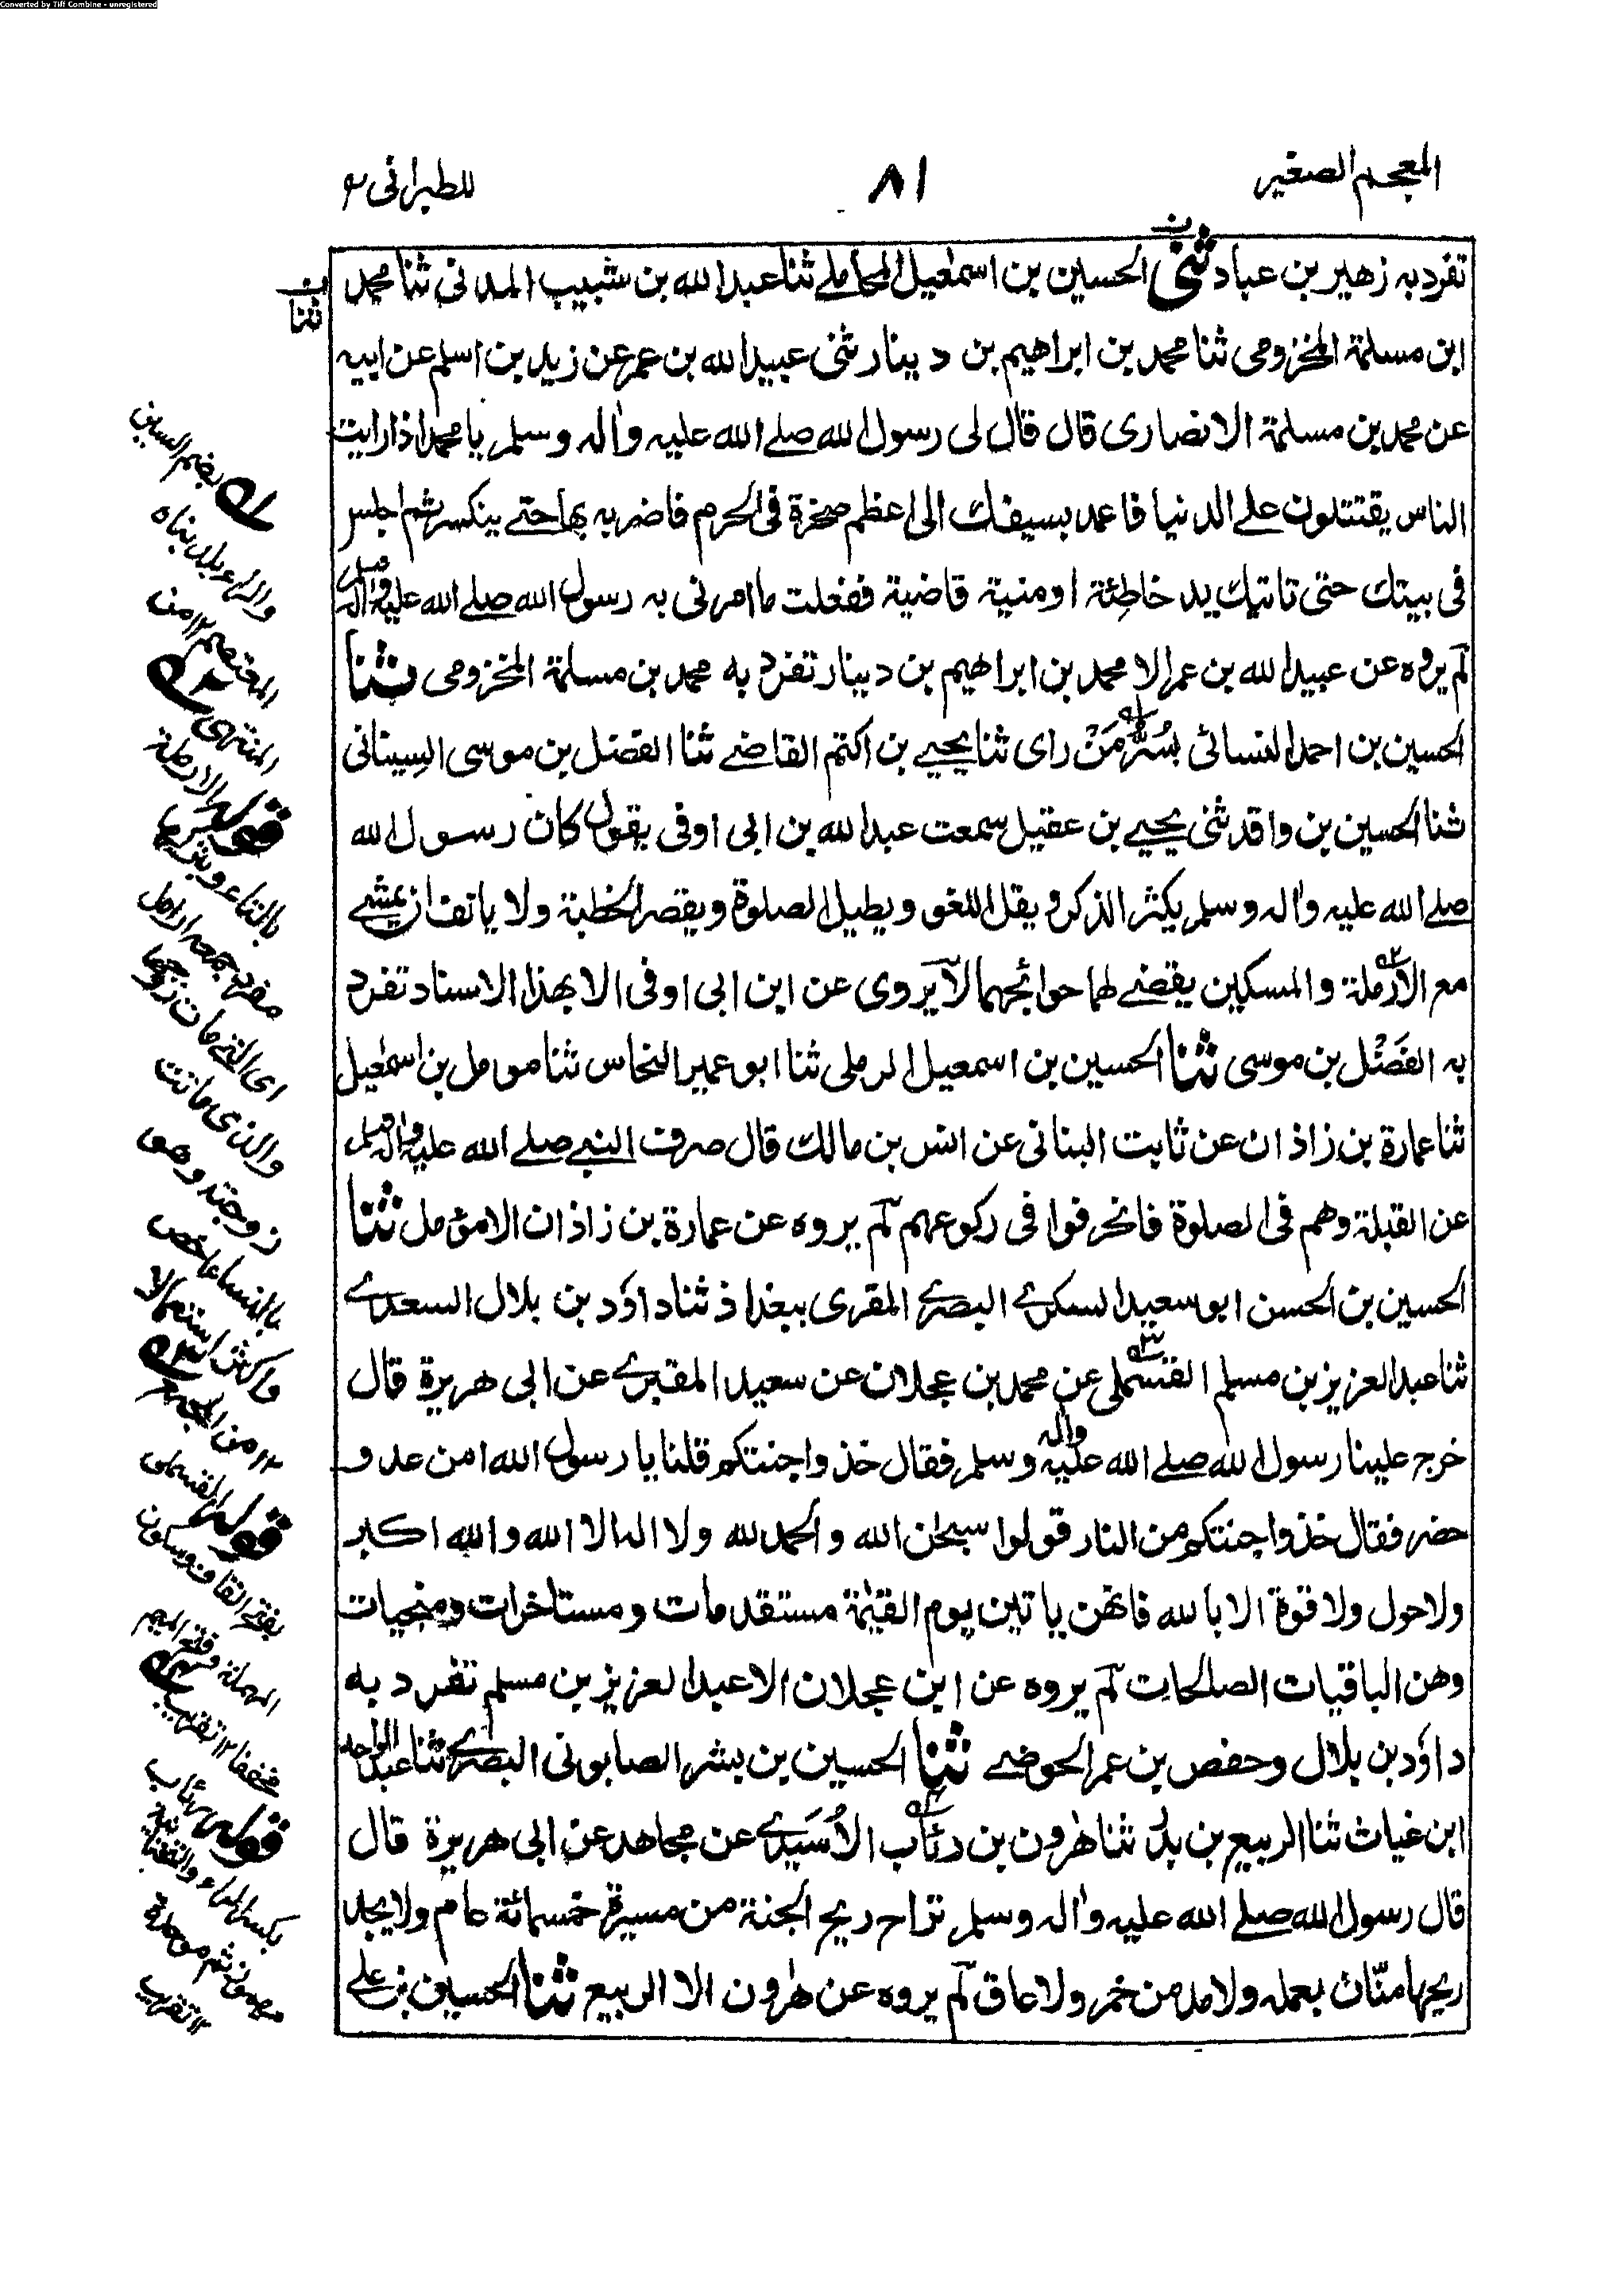 Converted by Tiff Combine - unregistered
المعجم الصغير
٨١
للطبرانى
تفرد به زهير بن عباد ثنى الحسين بن اسمٰعيل المحاملے ثنا عبد الله بن شبيب المدنى ثنا محمد
ابن مسلمة المخزومى ثنا محمد بن ابراهيم بن دينار ثنى عبيد الله بن عمر عن زيد بن اسلم عن ابيه
عن محمد بن مسلمة الانصارى قال قال لى رسول الله صلے الله عليه واٰله وسلم يا محمد اذا رايت
الناس يقتتلون علے الدنيا فاعمد بسيفك الى اعظم صخرة فى الحرم فاضربه بها حتے ينكسر ثم اجلس
فى بيتك حتى تاتيك يد خاطئة او منية قاضية ففعلت ما امرنى به رسول الله صلے الله عليه واٰله وسلم
لم يروه عن عبيد الله بن عمر الا محمد بن ابراهيم بن دينار تفرد به محمد بن مسلمة المخزومى ثنا
الحسين بن احمد النسائى بسُرَّ مَنْ راى ثنا يحيے بن اكثم القاضے ثنا الفضل بن موسى السينانى
ثنا الحسين بن واقد ثنى يحيے بن عقيل سمعت عبد الله بن ابى اوفى يقول كان رسول الله
صلے الله عليه واٰله وسلم يكثر الذكر و يقل اللغو ويطيل الصلوة ويقصر الخطبة ولا يانف ان يمشے
مع الارملة والمسكين يقضے لهما حوائجهما لا يروى عن ابن ابى اوفى الا بهذا الاسناد تفرد
به الفَضْل بن موسى ثنا الحسين بن اسمعيل الرملى ثنا ابو عمير النحاس ثنا مومل بن اسمٰعيل
ثنا عمارة بن زاذان عن ثابت البنانى عن انس بن مالك قال صرف النبے صلے الله عليه واٰله وسلم
عن القبلة وهم فى الصلوة فانحرفوا فى ركوعهم لم يروه عن عمارة بن زاذان الا مؤمل ثنا
الحسين بن الحسن ابو سعيد السكرے البصرے المقرى ببغداذ ثنا داؤد بن بلال السعدے
ثنا عبد العزيز بن مسلم القسملى عن محمد بن عجلان عن سعيد المقبرے عن ابى هريرة قال
خرج علينا رسول الله صلے الله عليه واٰله وسلم فقال خذوا جنتكم قلنا يا رسول الله امن عدو
حضر فقال خذوا جنتكم من النار قولوا سبحٰن الله والحمد لله ولا اله الا الله والله اكبر
ولا حول ولا قوة الا بالله فانهن ياتين يوم القيٰمة مستقدمات ومستاخرات ومنجيات
وهن الباقيات الصالحات لم يروه عن ابن عجلان الا عبد العزيز بن مسلم تفرد به
داؤد بن بلال وحفص بن عمر الحوضے ثنا الحسين بن بشر الصابونى البصرے ثنا عبد الواحد
ابن غياث ثنا الربيع بن بدر ثنا هٰرون بن رئاب الاُسَيِّدے عن مجاهد عن ابى هريرة قال
قال رسول الله صلے الله عليه واٰله وسلم تراح ريح الجنة من مسيرة خمسمائة عام ولا يجد
ريحها منّان بعمله ولا مدمن خمر ولا عاق لم يروه عن هٰرون الا الربيع ثنا الحسين بن علے
ثنا
بضم السين
والراء
المعتصم ١٢ من
المنتهى
قوله الارملة
بالتاء
مفرد جمعه ارامل
اى التے مات زوجها
والذى ماتت
زوجته وهو
بالنساء اخص
واكثر استعمالا
١٢ من المجمع
قوله القسملى
بفتح القاف وسكون
المهملة وفتح الميم
مخففا ١٢ تقريب
قوله رئاب
بكسر الراء والتحتانية
مهموز ثم موحدة
١٢ تقريب